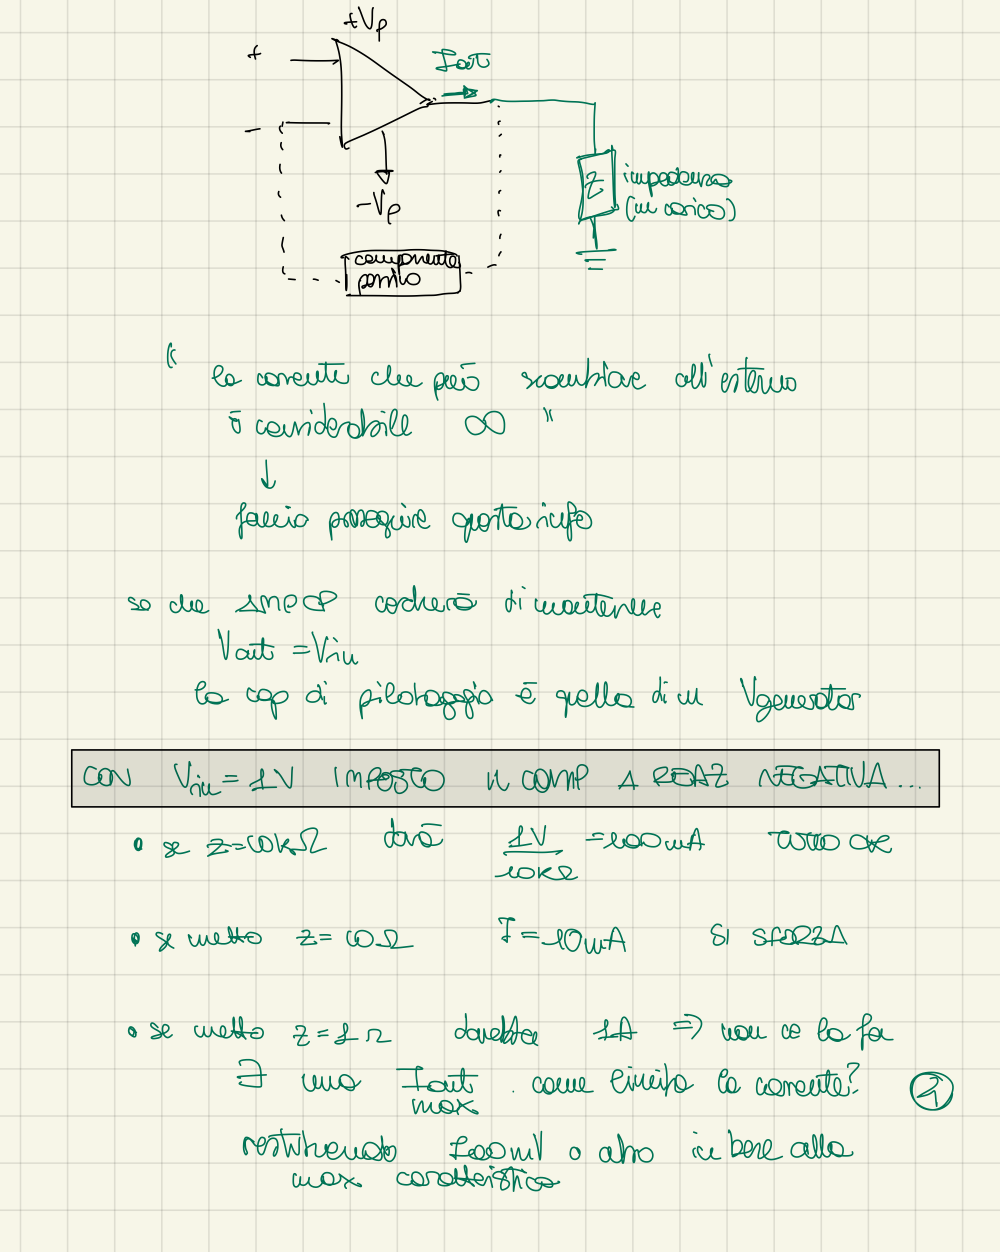 +Vp
+
Iout
-
Z impedenza
(un carico)
-Vp
componente
passivo
"la corrente che può scambiare all'esterno
è considerabile ∞"
↓
faccio proseguire questa info
so che AMPOP cercherà di mantenere
Vout = Vin
la cap di pilotaggio è quella di un Vgenerator
CON Vin = 1V IMPOSTO IL COMP A REAZ NEGATIVA...
• se z=10kΩ darà 1V/10kΩ =100mA TUTTO OK
• se metto z=10Ω I=10mA SI SFORZA
• se metto z=1Ω dovrebbe 1A => non ce la fa
∃ una Iout max. come limita la corrente? 1
restituendo 100mV o altro in base alla
max caratteristica